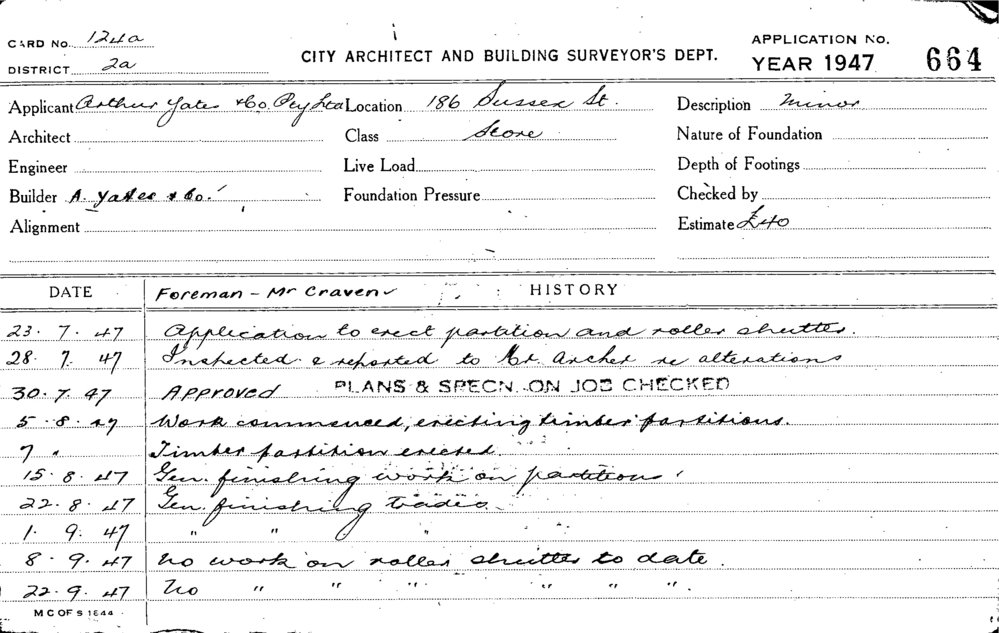 CARD NO. 124a
DISTRICT 2a
CITY ARCHITECT AND BUILDING SURVEYOR'S DEPT.
APPLICATION NO.
YEAR 1947 664
Applicant Arthur Yates & Co. Pty Ltd Location 186 Sussex St. Description Minor
Architect Class Store Nature of Foundation
Engineer Live Load Depth of Footings
Builder A. Yates & Co. Foundation Pressure Checked by
Alignment Estimate £40
DATE Foreman - Mr Craven HISTORY
23. 7. 47 Application to erect partition and roller shutter.
28. 7. 47 Inspected & reported to Mr. Archer re alterations
30. 7. 47 Approved PLANS & SPECN. ON JOB CHECKED
5. 8. 47 Work commenced, erecting timber partitions.
7 " Timber partition erected.
15. 8. 47 Gen. finishing work on partitions
22. 8. 47 Gen. finishing trades.
1. 9. 47 " " "
8. 9. 47 No work on roller shutter to date.
22. 9. 47 No " " " " " "
M C OF S 1844